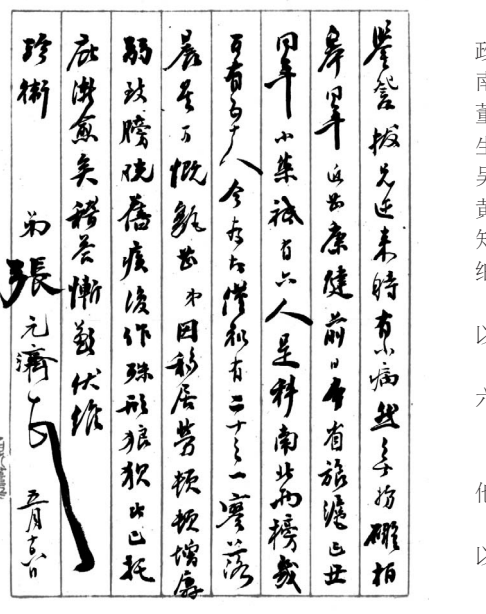 鑒詧拔兄近来時有小病然無妨礙柏
皋同年近甚康健前日本省旅滬己丑
同年小集祗有六人是科南北兩榜幾
可有百十人今存者僅祗有二十之一寥落
晨星可慨孰甚弟因移居勞頓頓增孱
弱致膀胱舊疾復作殊形狼狽比已托
庇漸愈矣稽答慚歉伏維
珍衛 弟張元濟頓首 五月十六日
政
南
董
生
吴
黄
以
六
他
以